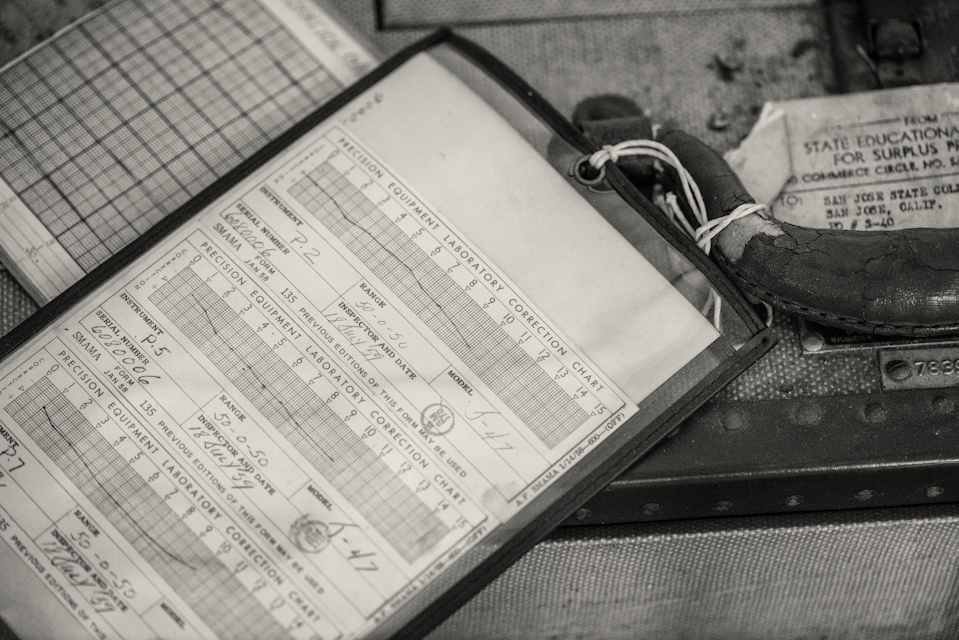 PRECISION EQUIPMENT LABORATORY CORRECTION CHART
0 1 2 3 4 5 6 7 8 9 10 11 12 13 14 15
INSTRUMENT P.2
SERIAL NUMBER 6080006
RANGE 50-0-50
MODEL J-47
INSPECTOR AND DATE 18 July 59
SMAMA FORM JAN 58 135 PREVIOUS EDITIONS OF THIS FORM MAY BE USED
A.F. SMAMA 1/14/58-600-(OFF)
PRECISION EQUIPMENT LABORATORY CORRECTION CHART
0 1 2 3 4 5 6 7 8 9 10 11 12 13 14 15
INSTRUMENT P.5
SERIAL NUMBER 6080006
RANGE 50-0-50
MODEL J-47
INSPECTOR AND DATE 18 July 59
SMAMA FORM JAN 58 135 PREVIOUS EDITIONS OF THIS FORM MAY BE USED
A.F. SMAMA 1/14/58-600-(OFF)
PRECISION EQUIPMENT LABORATORY CORRECTION CHART
0 1 2 3 4 5 6 7 8 9 10 11 12 13 14
P.7
RANGE 50-0-50
MODEL
INSPECTOR AND DATE 18 July 59
PREVIOUS EDITIONS OF THIS
FROM
STATE EDUCATIONA
FOR SURPLUS PR
COMMERCE CIRCLE, NO. SA
TO:
SAN JOSE STATE COLL
SAN JOSE, CALIF.
S-40
7839